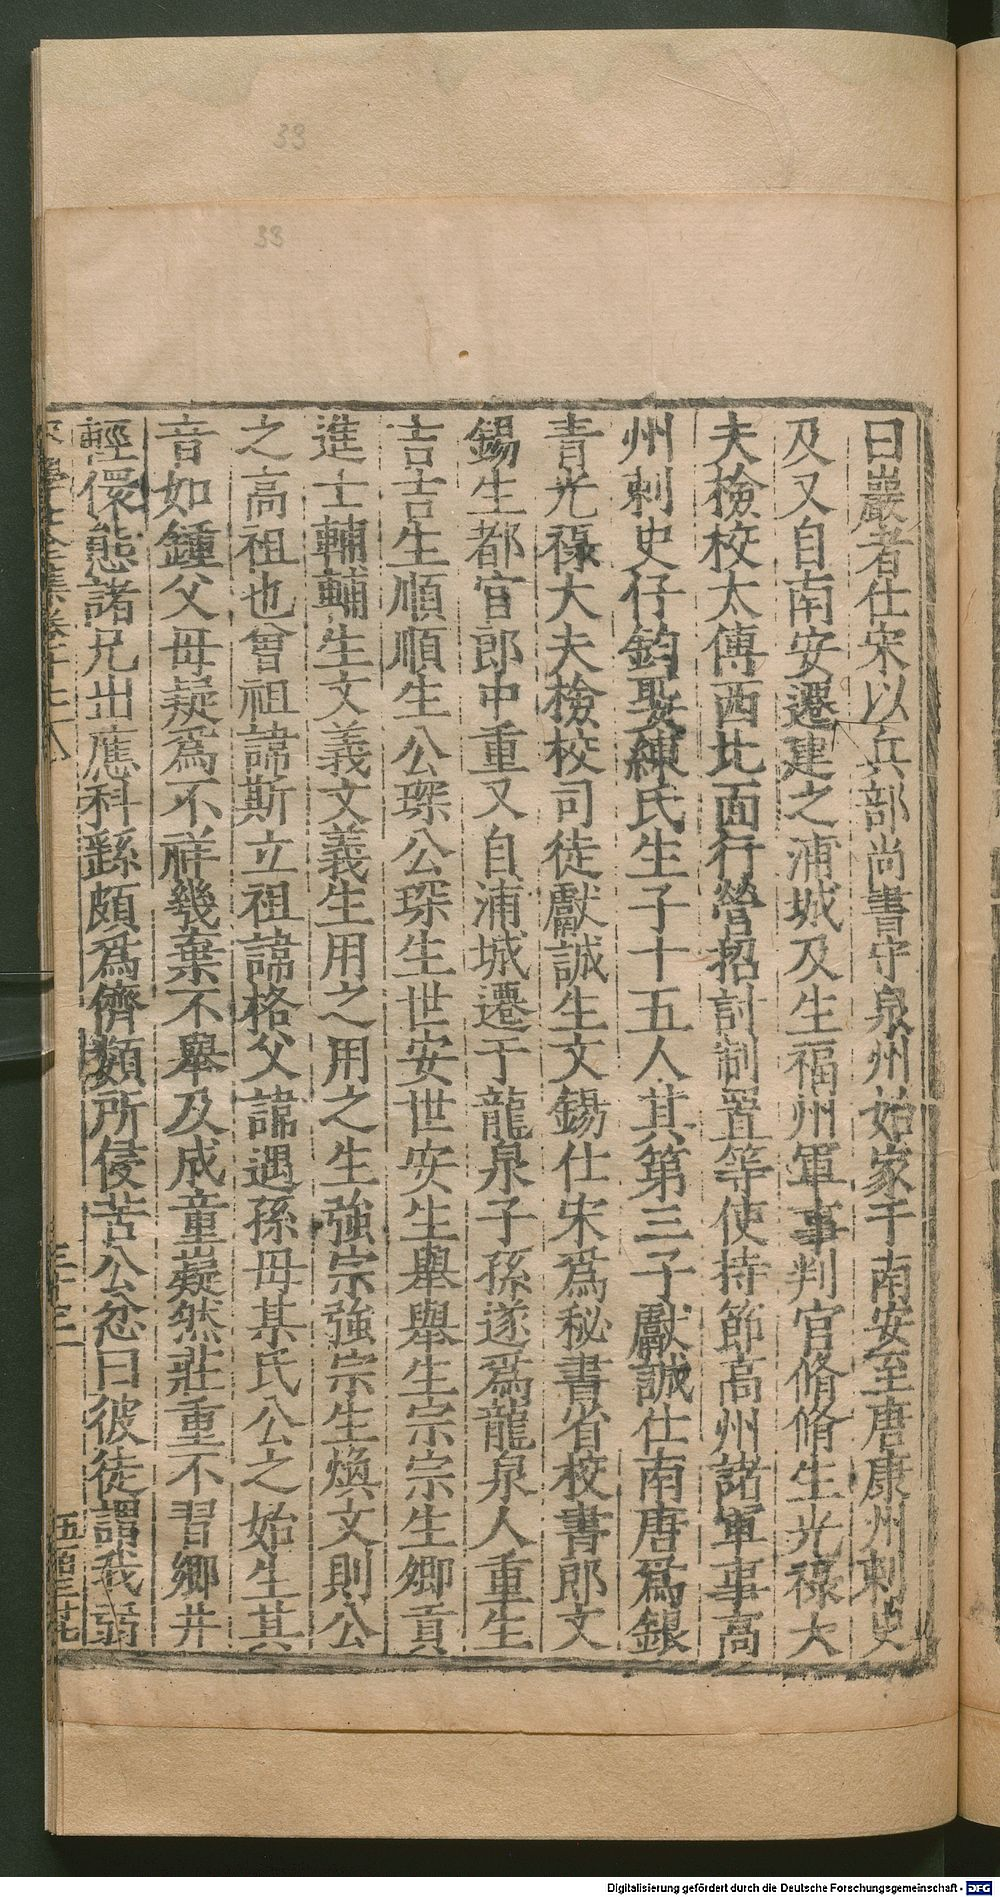 33
33
曰巖者仕宋以兵部尚書守泉州始家于南安至唐康州刺史
及又自南安遷建之浦城及生福州軍事判官脩脩生光祿大
夫檢校太傅西北面行營招討制置等使持節高州諸軍事高
州刺史仔鈞娶練氏生子十五人其第三子獻誠仕南唐爲銀
青光祿大夫檢校司徒獻誠生文錫仕宋爲秘書省校書郎文
錫生都官郎中重又自浦城遷于龍泉子孫遂爲龍泉人重生
吉吉生順順生公琛公琛生世安世安生舉舉生宗宗生鄉貢
進士輔輔生文義文義生用之用之生強宗強宗生煥文則公
之高祖也曾祖諱斯立祖諱格父諱遇孫母某氏公之始生其
音如鍾父母疑爲不祥幾棄不舉及成童嶷然莊重不習鄉井
輕儇態諸兄出應科繇頗爲儕類所侵苦公忿曰彼徒謂我弱
Digitalisierung gefördert durch die Deutsche Forschungsgemeinschaft - DFG